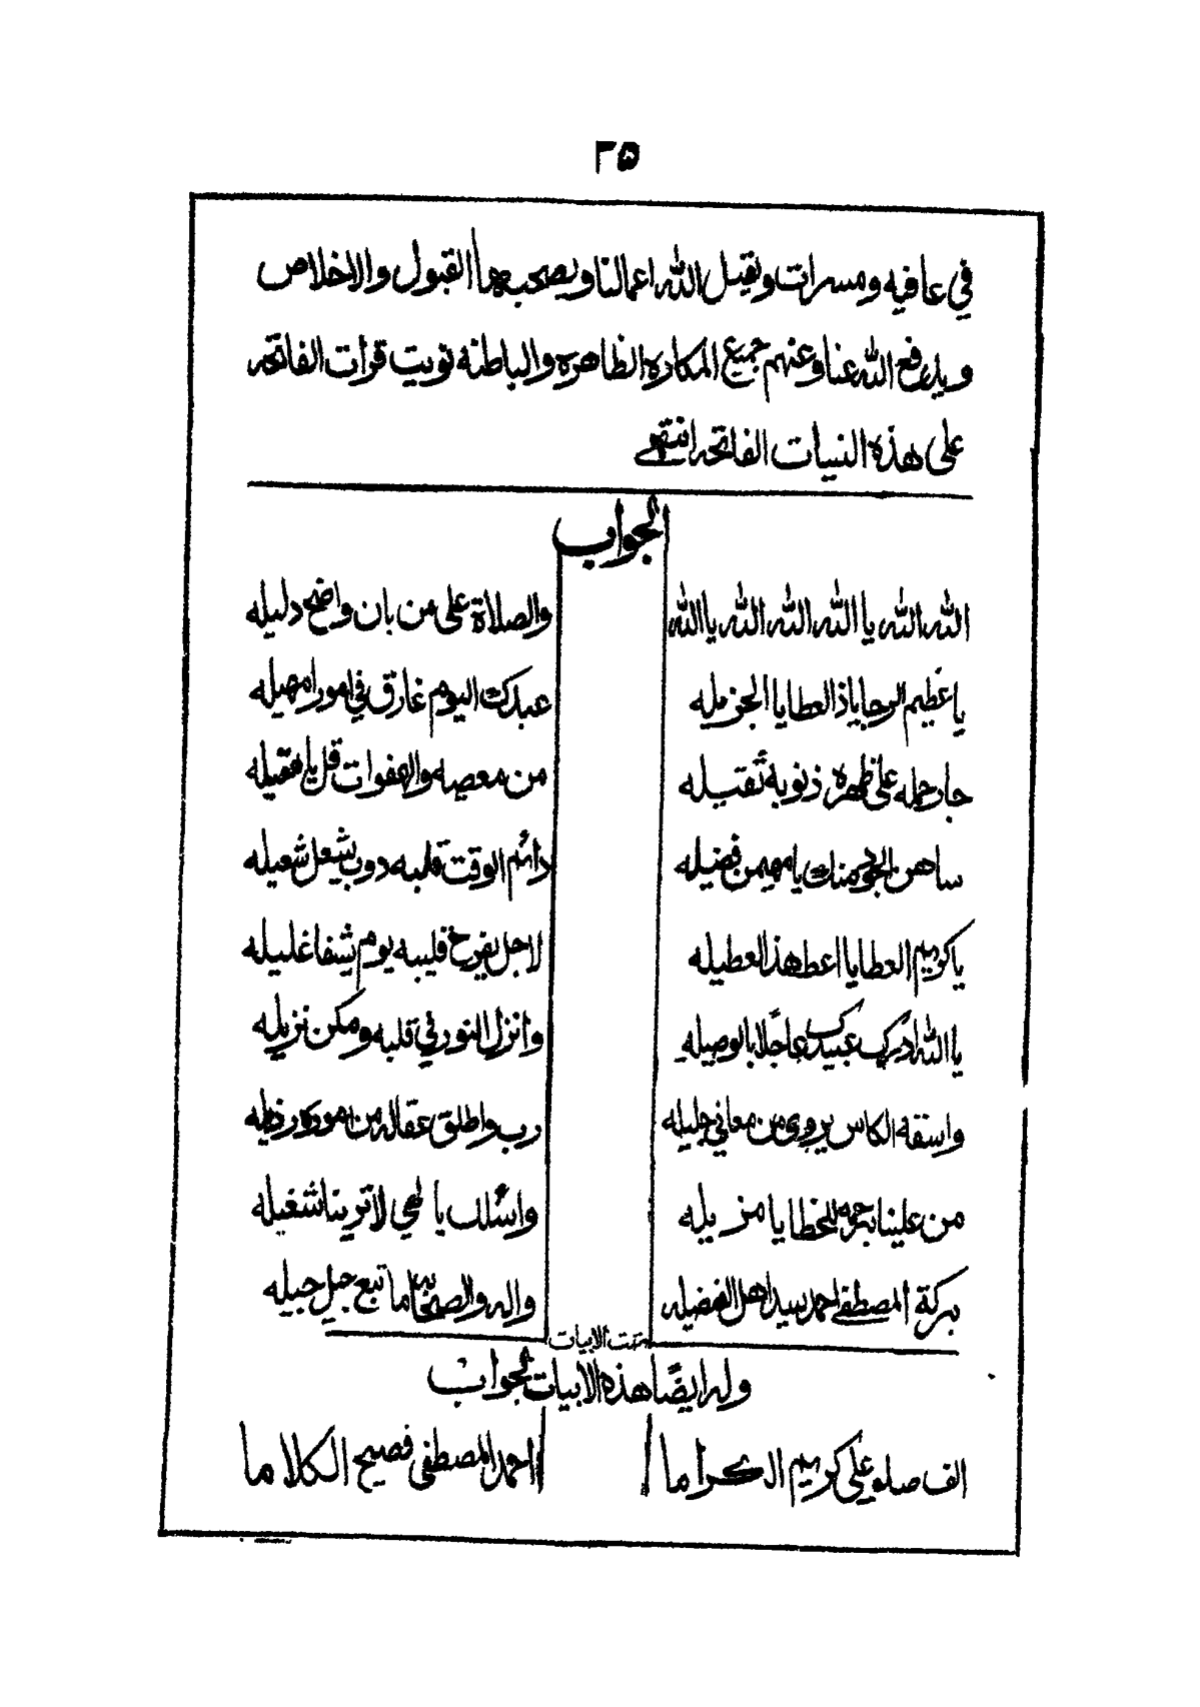 ٣٥
في عافيه ومسرات وتقبل الله اعمالنا ويصحبها القبول والاخلاص
ويدفع الله عنا وعنهم جميع المكاره الظاهره والباطنه نويت قرأت الفاتحه
على هذه النيات الفاتحه انتهى
الجواب
الله الله يا الله الله الله يا الله والصلاة على من بان واضح دليله
يا عظيم الرجا يا ذالعطايا الجزيله عبدك اليوم غارق في امور مهيله
حار حمله على ظهره ذنوبه ثقيله من معصيه والهفوات قل يا مقيله
ساهن الجود منك يا مهيمن فضيله دائم الوقت قلبه دوب يشعل شعيله
يا كريم العطايا اعط هذالعطيله لاجل يفرح قليبه يوم يشفا غليله
يا الله ادرك عبيدك عاجلا بالوصيله وانزل النور في قلبه ومكن نزيله
واسقه الكاس يروى من معاني جليله رب واطلق عقاله من امور
من علينا برحمه للخطايا مزيله واسئلك يا الهي لا ترينا شغيله
بركة المصطفى احمد سيد اهل الفضيله واله والصحابه ما تبع جيل جيله
تمت الابيات
وله ايضًا هذه الابيات الجواب
الف صلو على كريم الكراما احمد المصطفى فصيح الكلاما